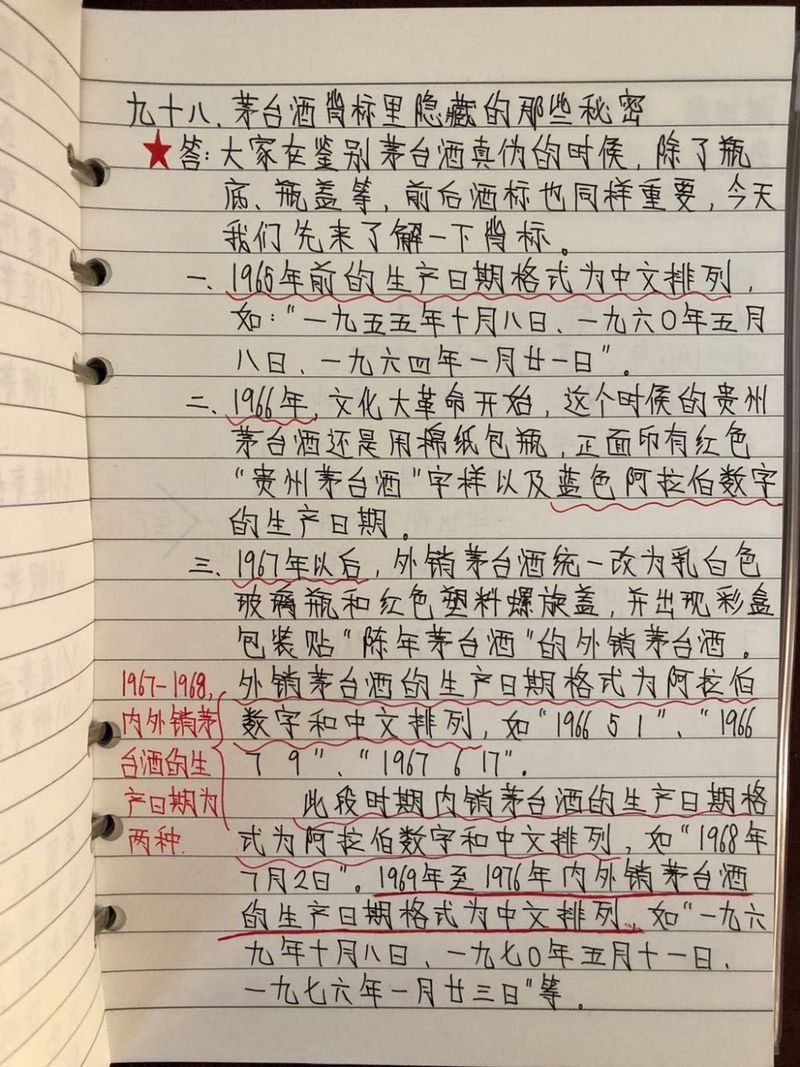 九十八、茅台酒背标里隐藏的那些秘密
★答：大家在鉴别茅台酒真伪的时候，除了瓶
底、瓶盖等，前后酒标也同样重要，今天
我们先来了解一下背标。
一、1965年前的生产日期格式为中文排列，
如：“一九五五年十月八日、一九六〇年五月
八日、一九六四年一月廿一日”。
二、1966年，文化大革命开始，这个时候的贵州
茅台酒还是用棉纸包瓶，正面印有红色
“贵州茅台酒”字样以及蓝色阿拉伯数字
的生产日期。
三、1967年以后，外销茅台酒统一改为乳白色
玻璃瓶和红色塑料螺旋盖，并出现彩盒
包装贴“陈年茅台酒”的外销茅台酒。
外销茅台酒的生产日期格式为阿拉伯
数字和中文排列，如“1966 5 1”、“1966
7 9”、“1967 6 17”。
此段时期内销茅台酒的生产日期格
式为阿拉伯数字和中文排列，如“1968年
7月2日”。1969年至1976年内外销茅台酒
的生产日期格式为中文排列，如“一九六
九年十月八日、一九七〇年五月十一日、
一九七六年一月廿三日”等。
1967-1968，
内外销茅
台酒的生
产日期为
两种.